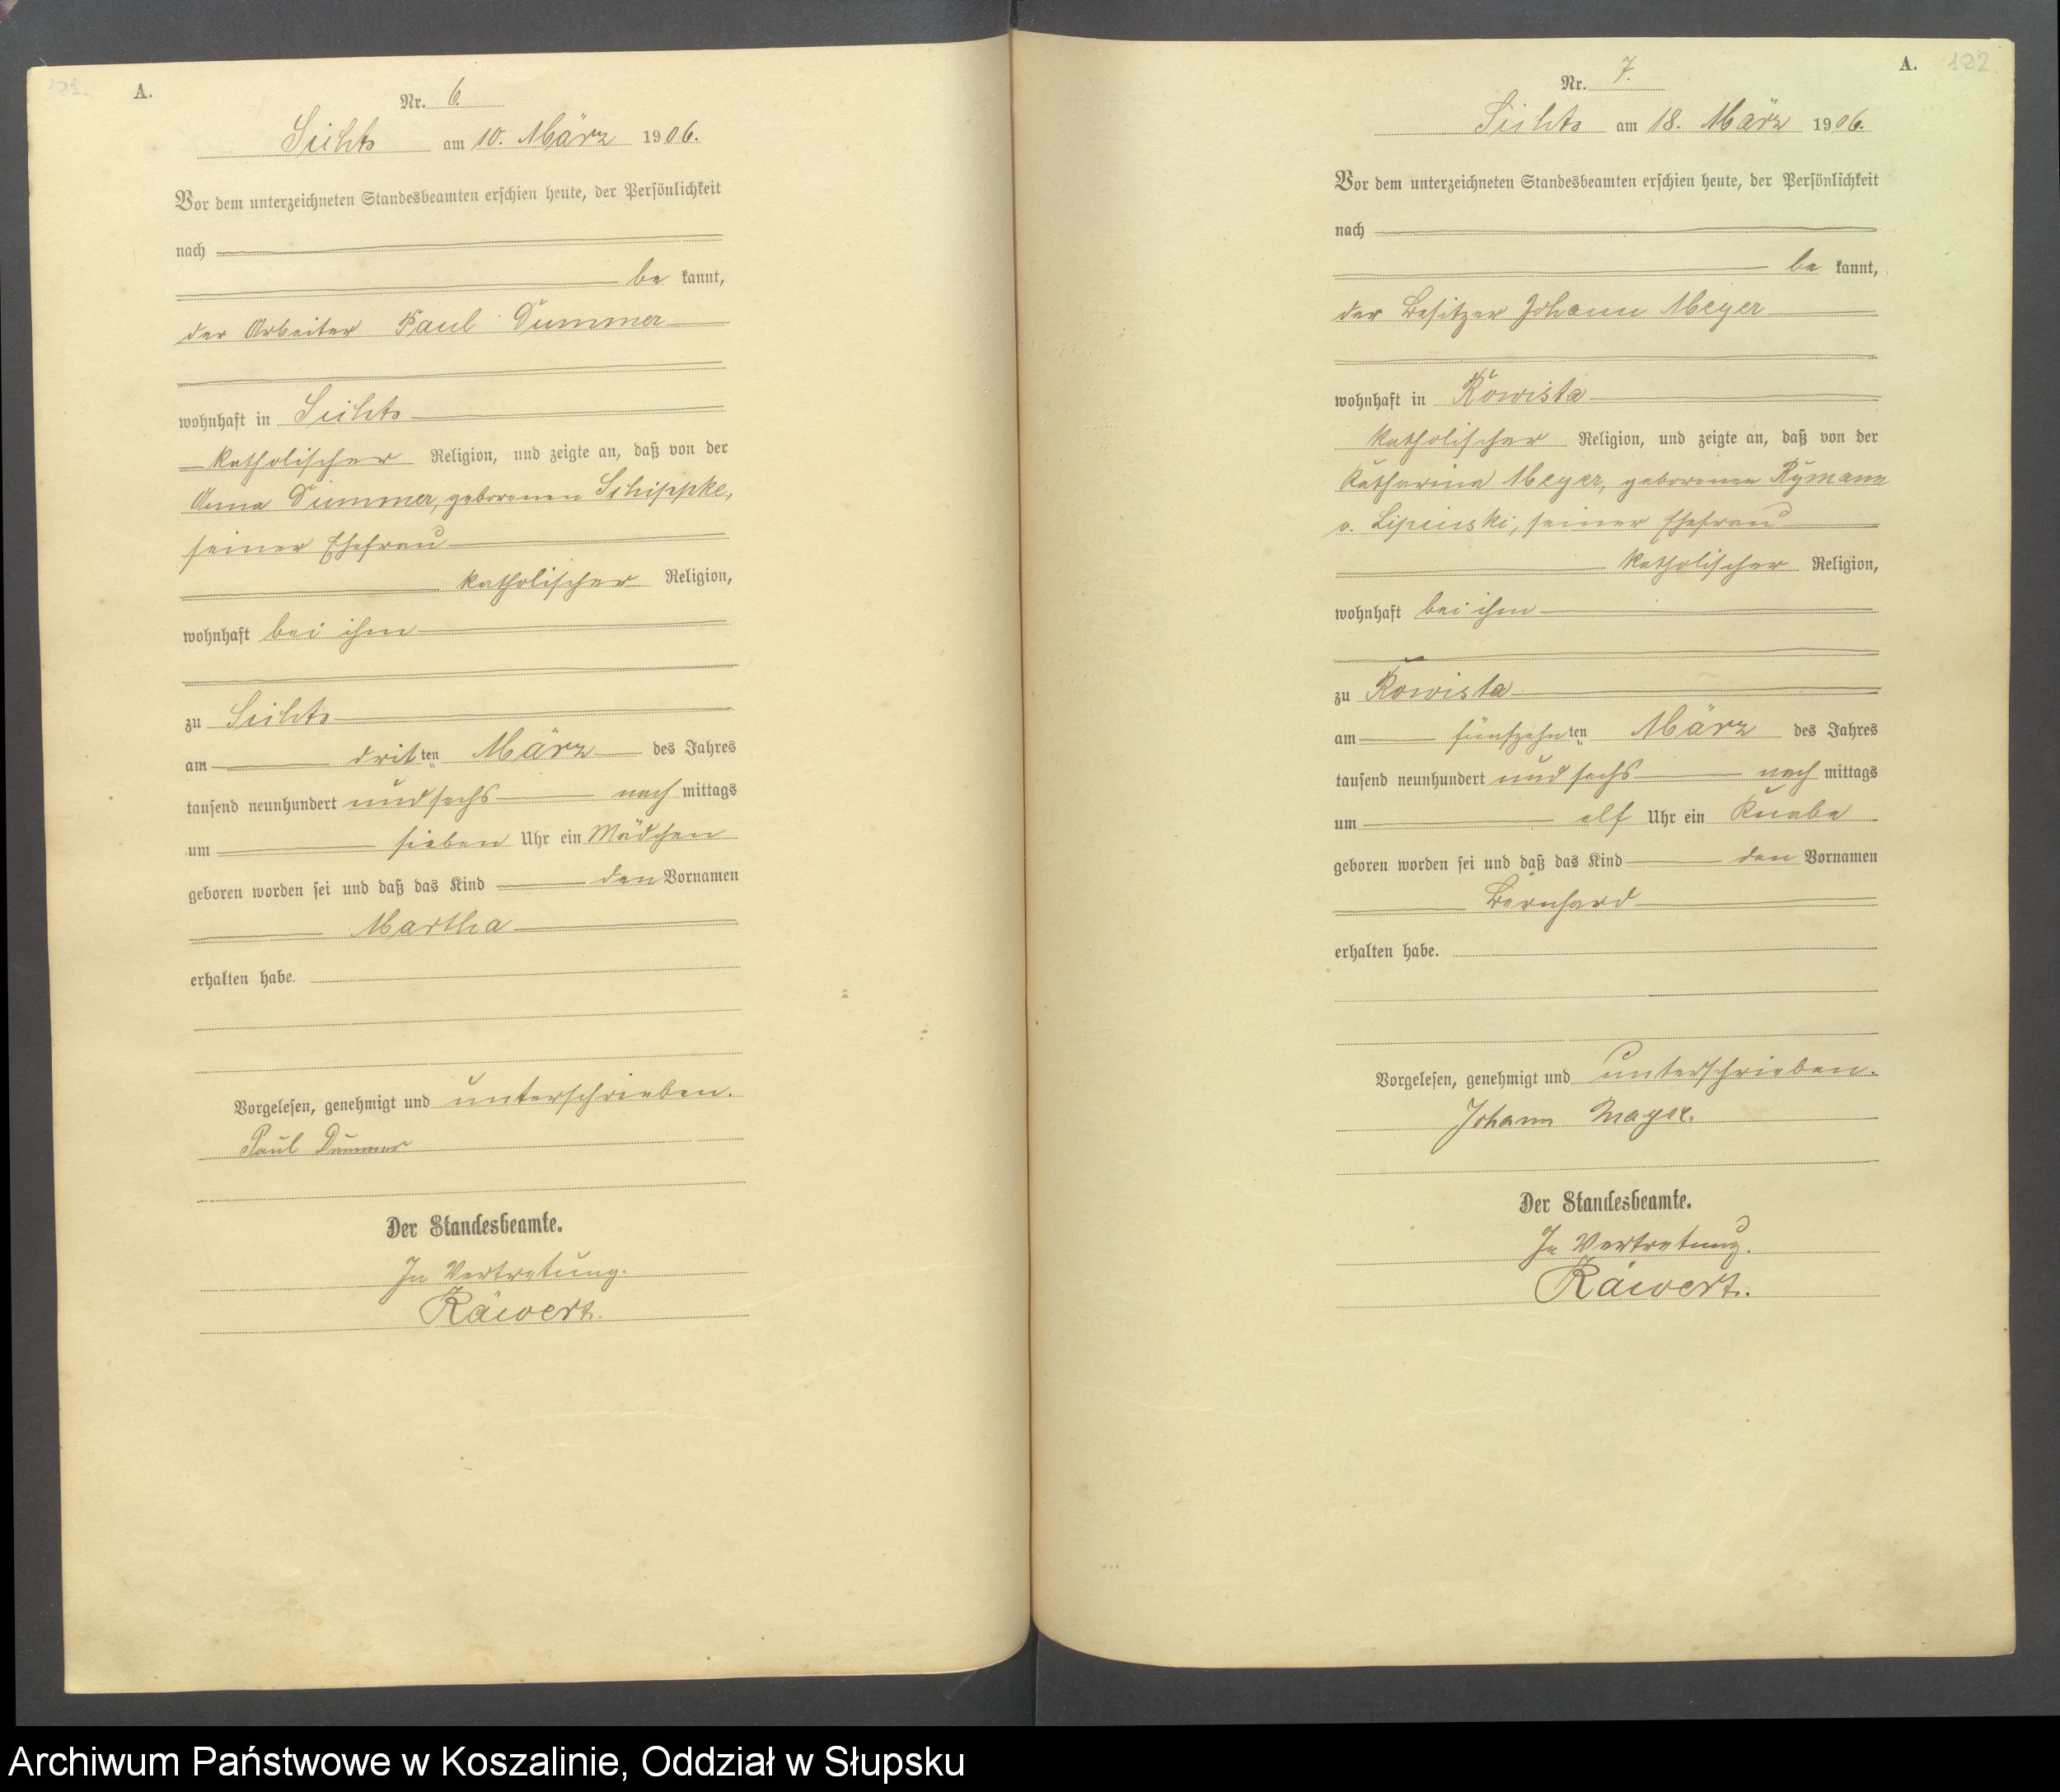 A.
Nr. 6.
Sichts am 10. März 1906.
Vor dem unterzeichneten Standesbeamten erschien heute, der Persönlichkeit
nach
be kannt,
der Arbeiter Paul Dummer
wohnhaft in Sichts
katholischer Religion, und zeigte an, daß von der
Anna Dummer, geborenen Schippke,
seiner Ehefrau
katholischer Religion,
wohnhaft bei ihm
zu Sichts
am dritten März des Jahres
tausend neunhundert und sechs nach mittags
um sieben Uhr ein Mädchen
geboren worden sei und daß das Kind den Vornamen
Martha
erhalten habe.
Vorgelesen, genehmigt und unterschrieben.
Paul Dummer
Der Standesbeamte.
In Vertretung.
A. 192
Nr. 7.
Sichts am 18. März 1906.
Vor dem unterzeichneten Standesbeamten erschien heute, der Persönlichkeit
nach
be kannt,
der Besitzer Johann Meyer
wohnhaft in Rowista
katholischer Religion, und zeigte an, daß von der
Katharina Meyer, geborenen Rymann
v. Lipinski, seiner Ehefrau
katholischer Religion,
wohnhaft bei ihm
zu Rowista
am fünfzehnten März des Jahres
tausend neunhundert und sechs nach mittags
um elf Uhr ein Knabe
geboren worden sei und daß das Kind den Vornamen
Bernhard
erhalten habe.
Vorgelesen, genehmigt und unterschrieben.
Johann Mayer.
Der Standesbeamte.
In Vertretung.
Archiwum Państwowe w Koszalinie, Oddział w Słupsku